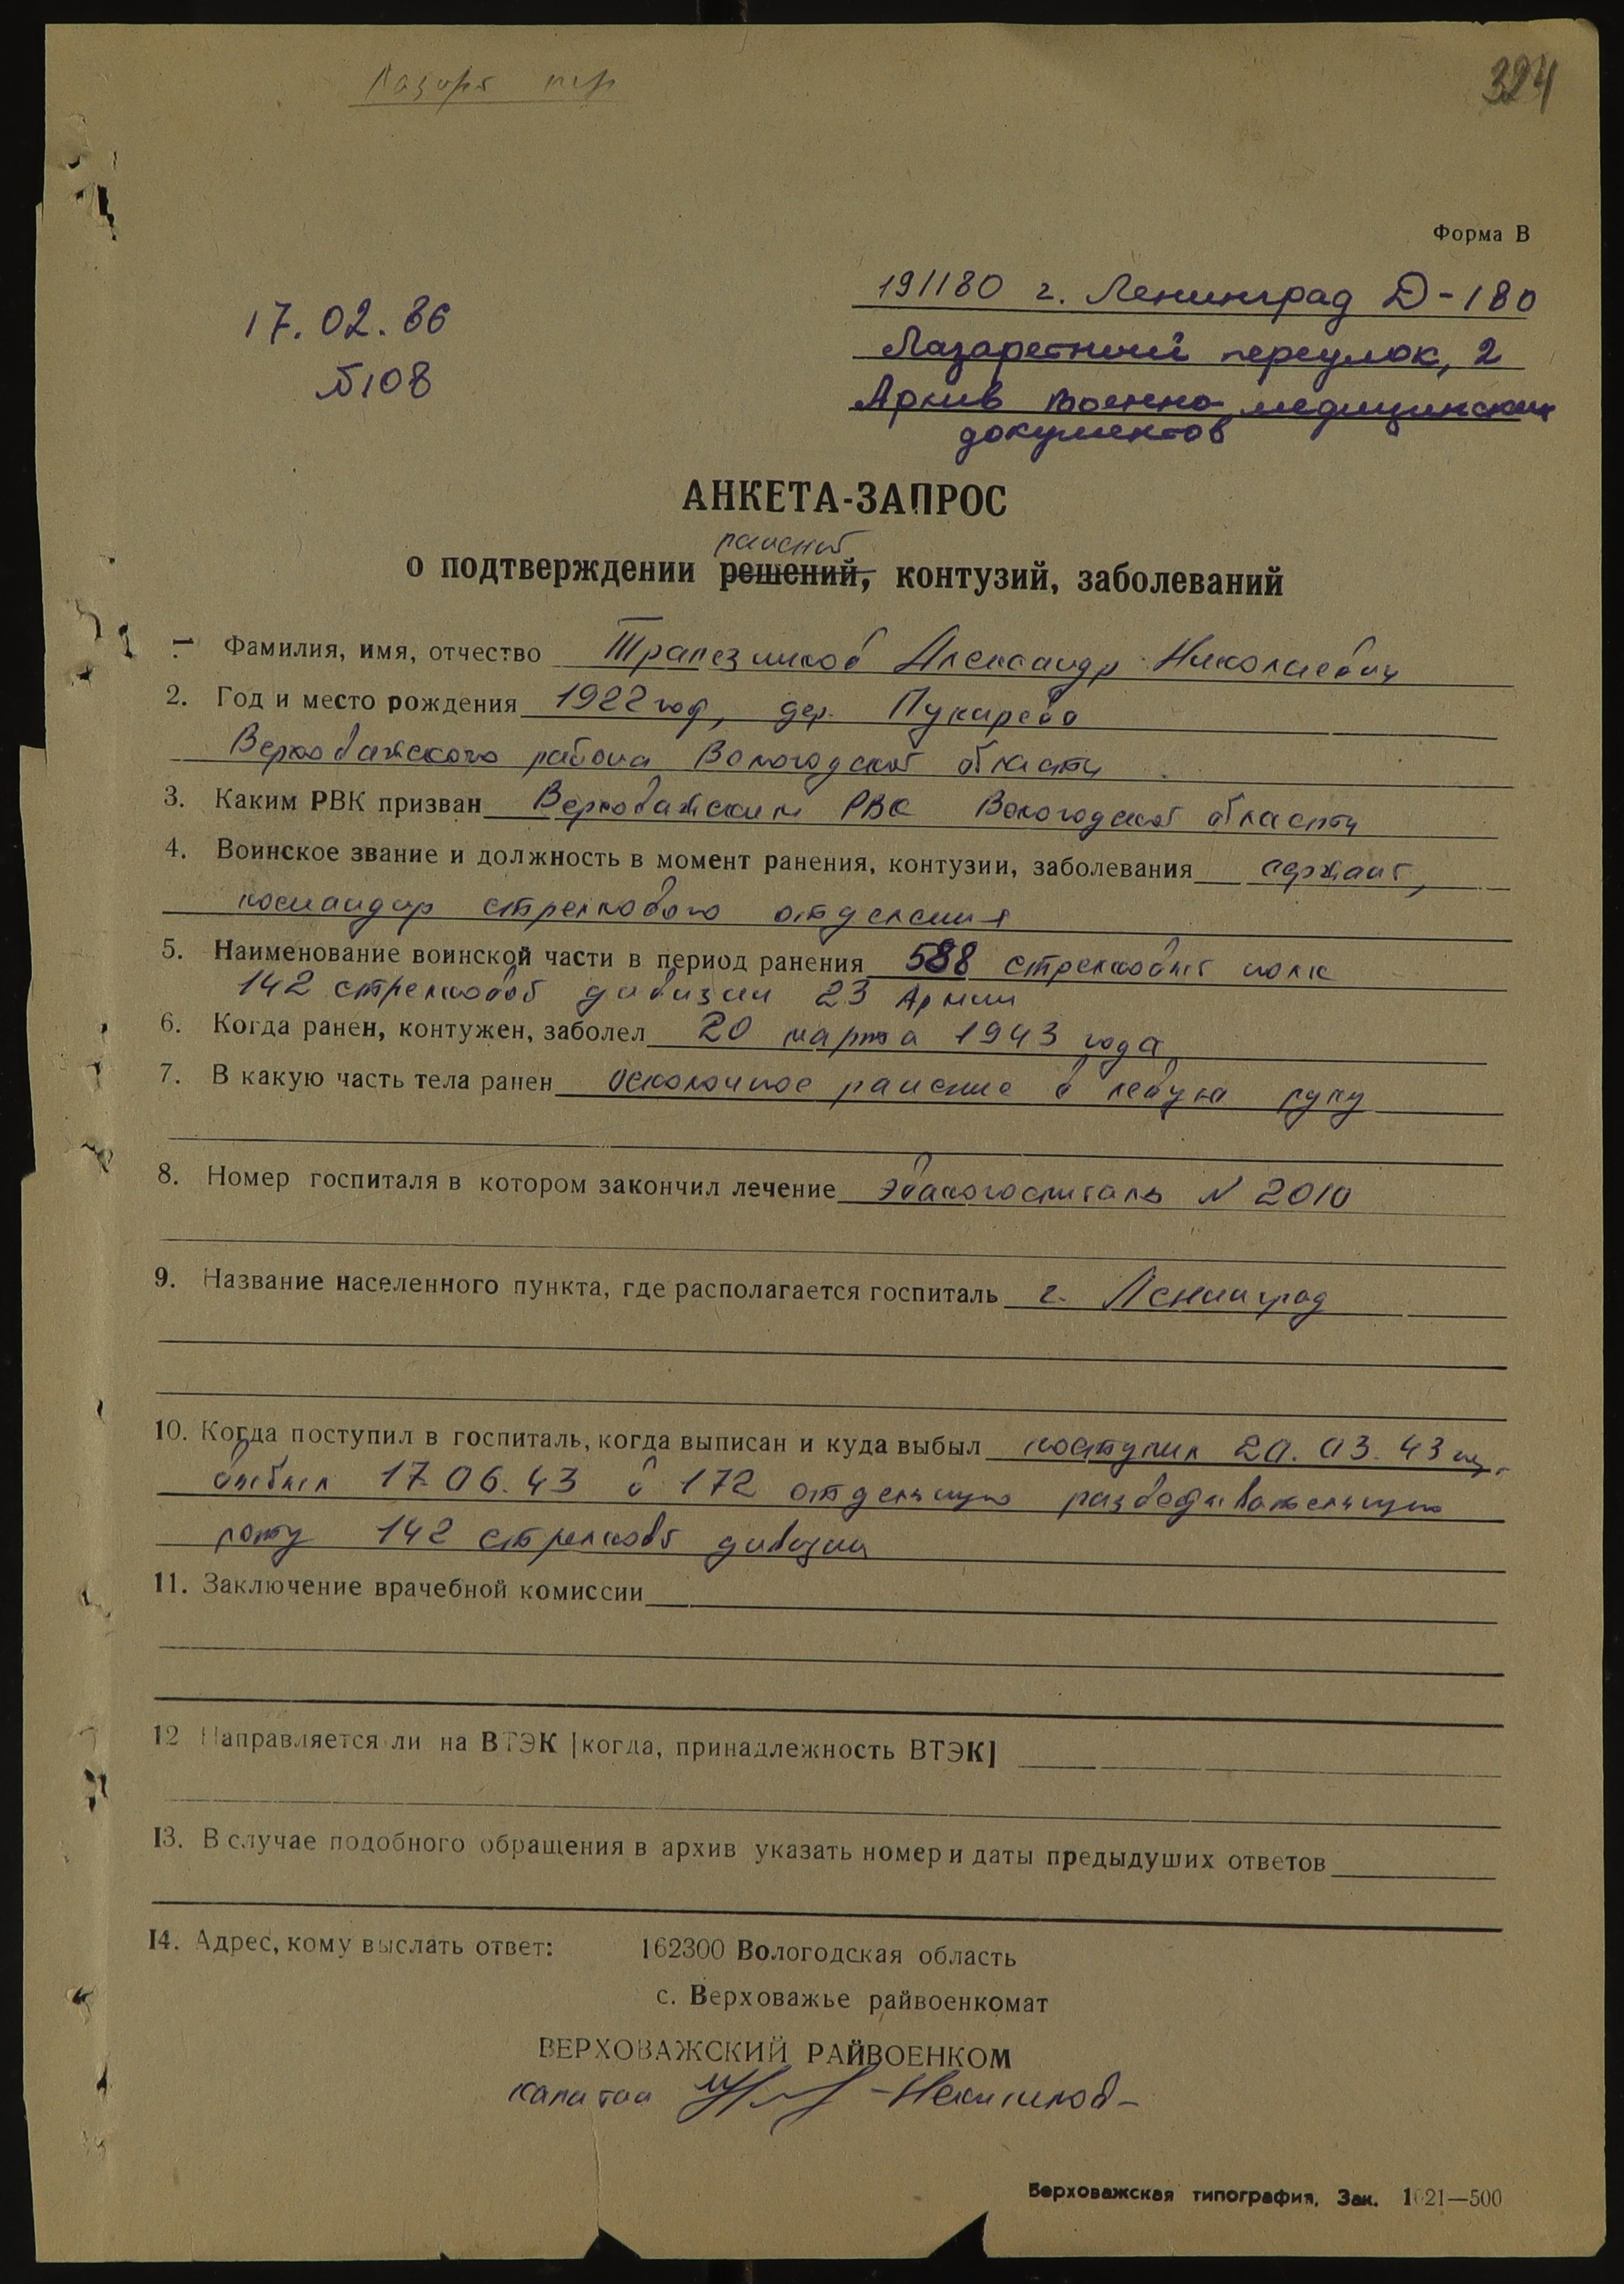 324
Форма В
17.02.86
№108
191180 г. Ленинград Д-180
Лазаретный переулок, 2
Архив военно-медицинских
документов
АНКЕТА-ЗАПРОС
ранений
о подтверждении решений, контузий, заболеваний
1. Фамилия, имя, отчество Трапезников Александр Николаевич
2. Год и место рождения 1922 год, дер. Пукарево
Верховажского района Вологодской области
3. Каким РВК призван Верховажским РВК Вологодской области
4. Воинское звание и должность в момент ранения, контузии, заболевания сержант,
командир стрелкового отделения
5. Наименование воинской части в период ранения 588 стрелковый полк
142 стрелковой дивизии 23 Армии
6. Когда ранен, контужен, заболел 20 марта 1943 года
7. В какую часть тела ранен осколочное ранение в левую руку
8. Номер госпиталя в котором закончил лечение эвакогоспиталь N 2010
9. Название населенного пункта, где располагается госпиталь г. Ленинград
10. Когда поступил в госпиталь, когда выписан и куда выбыл поступил 20.03.43
выбыл 17.06.43 в 172 отдельную разведывательную
роту 142 стрелковой дивизии
11. Заключение врачебной комиссии
12 Направляется ли на ВТЭК [когда, принадлежность ВТЭК]
13. В случае подобного обращения в архив указать номер и даты предыдуших ответов
14. Адрес, кому выслать ответ: 162300 Вологодская область
с. Верховажье райвоенкомат
ВЕРХОВАЖСКИЙ РАЙВОЕНКОМ
капитан
Верховажская типография, Зак. 1621—500